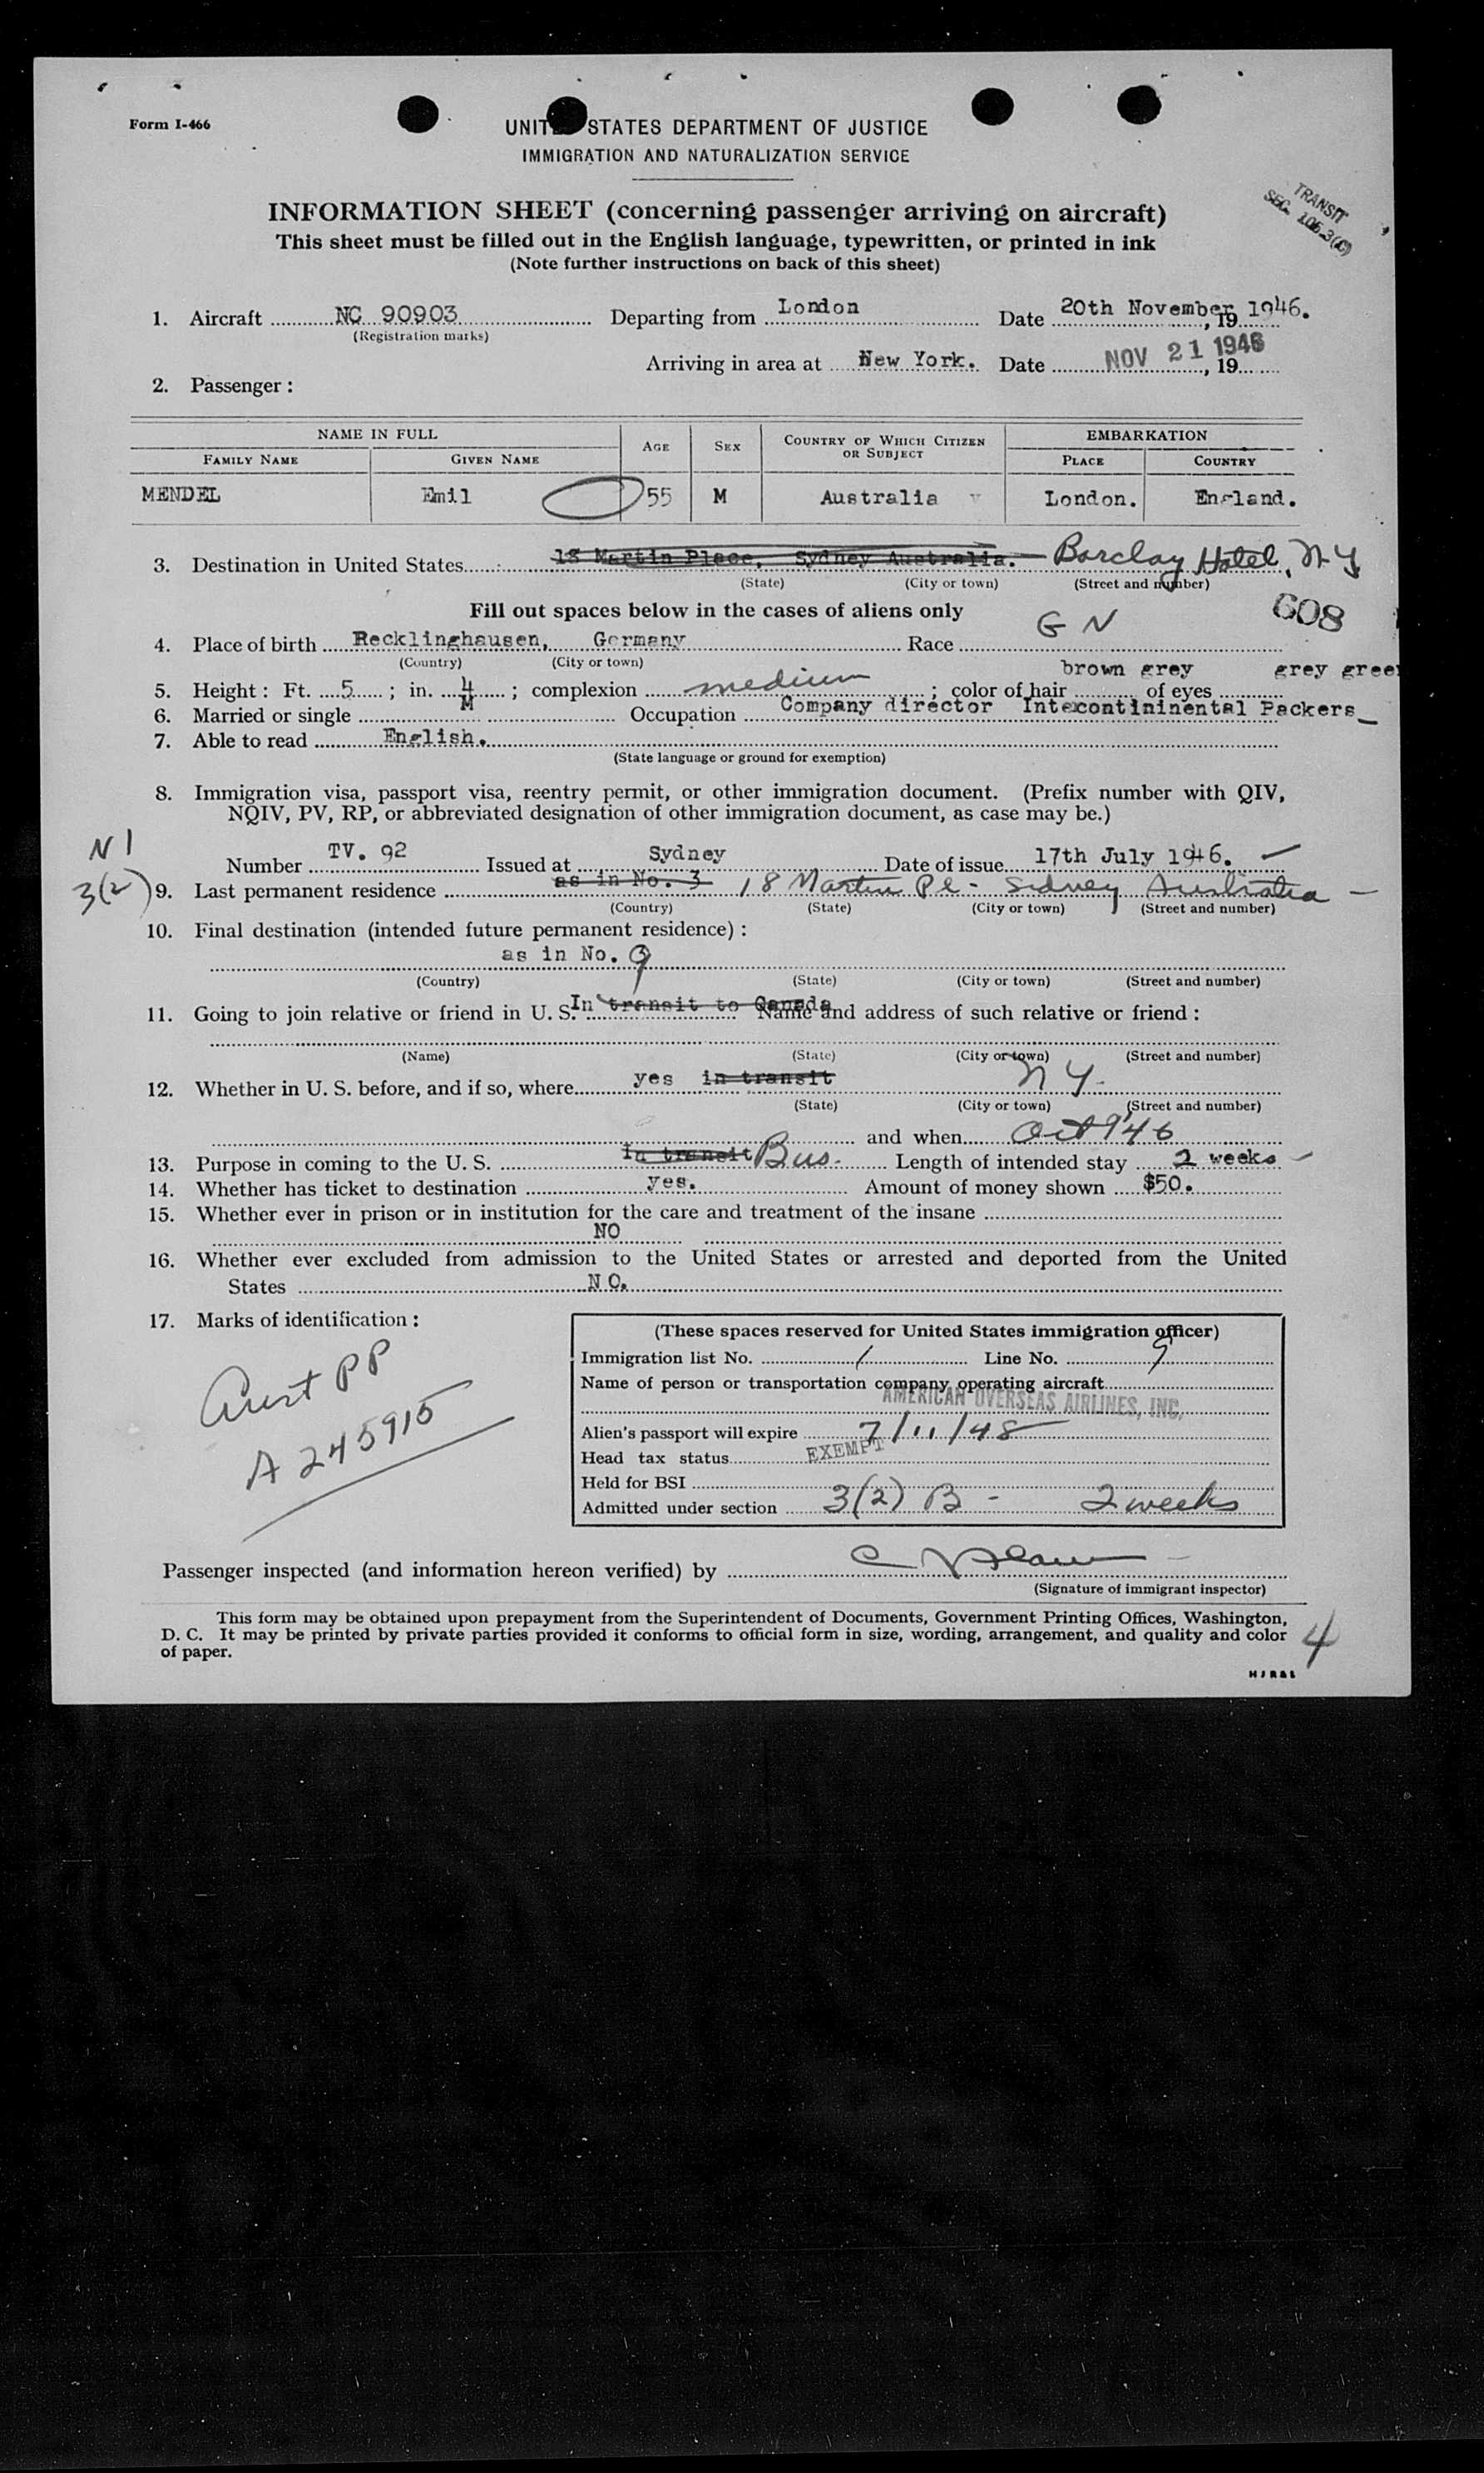 Form I-466
UNITED STATES DEPARTMENT OF JUSTICE
IMMIGRATION AND NATURALIZATION SERVICE
TRANSIT
SEC. 105.3(C)
INFORMATION SHEET (concerning passenger arriving on aircraft)
This sheet must be filled out in the English language, typewritten, or printed in ink
(Note further instructions on back of this sheet)
1. Aircraft NC 90903 Departing from London Date 20th November, 19 1946.
(Registration marks)
Arriving in area at New York. Date NOV 21 1946, 19
2. Passenger:
NAME IN FULL AGE SEX COUNTRY OF WHICH CITIZEN OR SUBJECT EMBARKATION
FAMILY NAME GIVEN NAME PLACE COUNTRY
MENDEL Emil 55 M Australia London. England.
3. Destination in United States 18 Martin Place, Sydney Australia. Barclay Hotel, NY
(State) (City or town) (Street and number)
Fill out spaces below in the cases of aliens only
608
4. Place of birth Recklinghausen, Germany Race G N
(Country) (City or town)
5. Height: Ft. 5; in. 4; complexion medium; color of hair brown grey of eyes grey green
6. Married or single M Occupation Company director Intercontininental Packers
7. Able to read English.
(State language or ground for exemption)
8. Immigration visa, passport visa, reentry permit, or other immigration document. (Prefix number with QIV,
NQIV, PV, RP, or abbreviated designation of other immigration document, as case may be.)
N1
Number TV. 92 Issued at Sydney Date of issue 17th July 1946.
3(2)
9. Last permanent residence as in No. 3 18 Martin Pl - Sidney Australia -
(Country) (State) (City or town) (Street and number)
10. Final destination (intended future permanent residence):
as in No. 9
(Country) (State) (City or town) (Street and number)
11. Going to join relative or friend in U. S. In transit to Canada Name and address of such relative or friend:
(Name) (State) (City or town) (Street and number)
12. Whether in U. S. before, and if so, where yes in transit NY.
(State) (City or town) (Street and number)
and when Oct 946
13. Purpose in coming to the U. S. In transit Bus. Length of intended stay 2 weeks
14. Whether has ticket to destination yes. Amount of money shown $50.
15. Whether ever in prison or in institution for the care and treatment of the insane
NO
16. Whether ever excluded from admission to the United States or arrested and deported from the United
States NO.
17. Marks of identification:
Aust PP
A 245915
(These spaces reserved for United States immigration officer)
Immigration list No. 1 Line No. 9
Name of person or transportation company operating aircraft
AMERICAN OVERSEAS AIRLINES, INC.
Alien's passport will expire 7/11/48
Head tax status EXEMPT
Held for BSI
Admitted under section 3(2) B - 2 weeks
Passenger inspected (and information hereon verified) by
(Signature of immigrant inspector)
This form may be obtained upon prepayment from the Superintendent of Documents, Government Printing Offices, Washington,
D. C. It may be printed by private parties provided it conforms to official form in size, wording, arrangement, and quality and color
of paper.
4
HJR&L